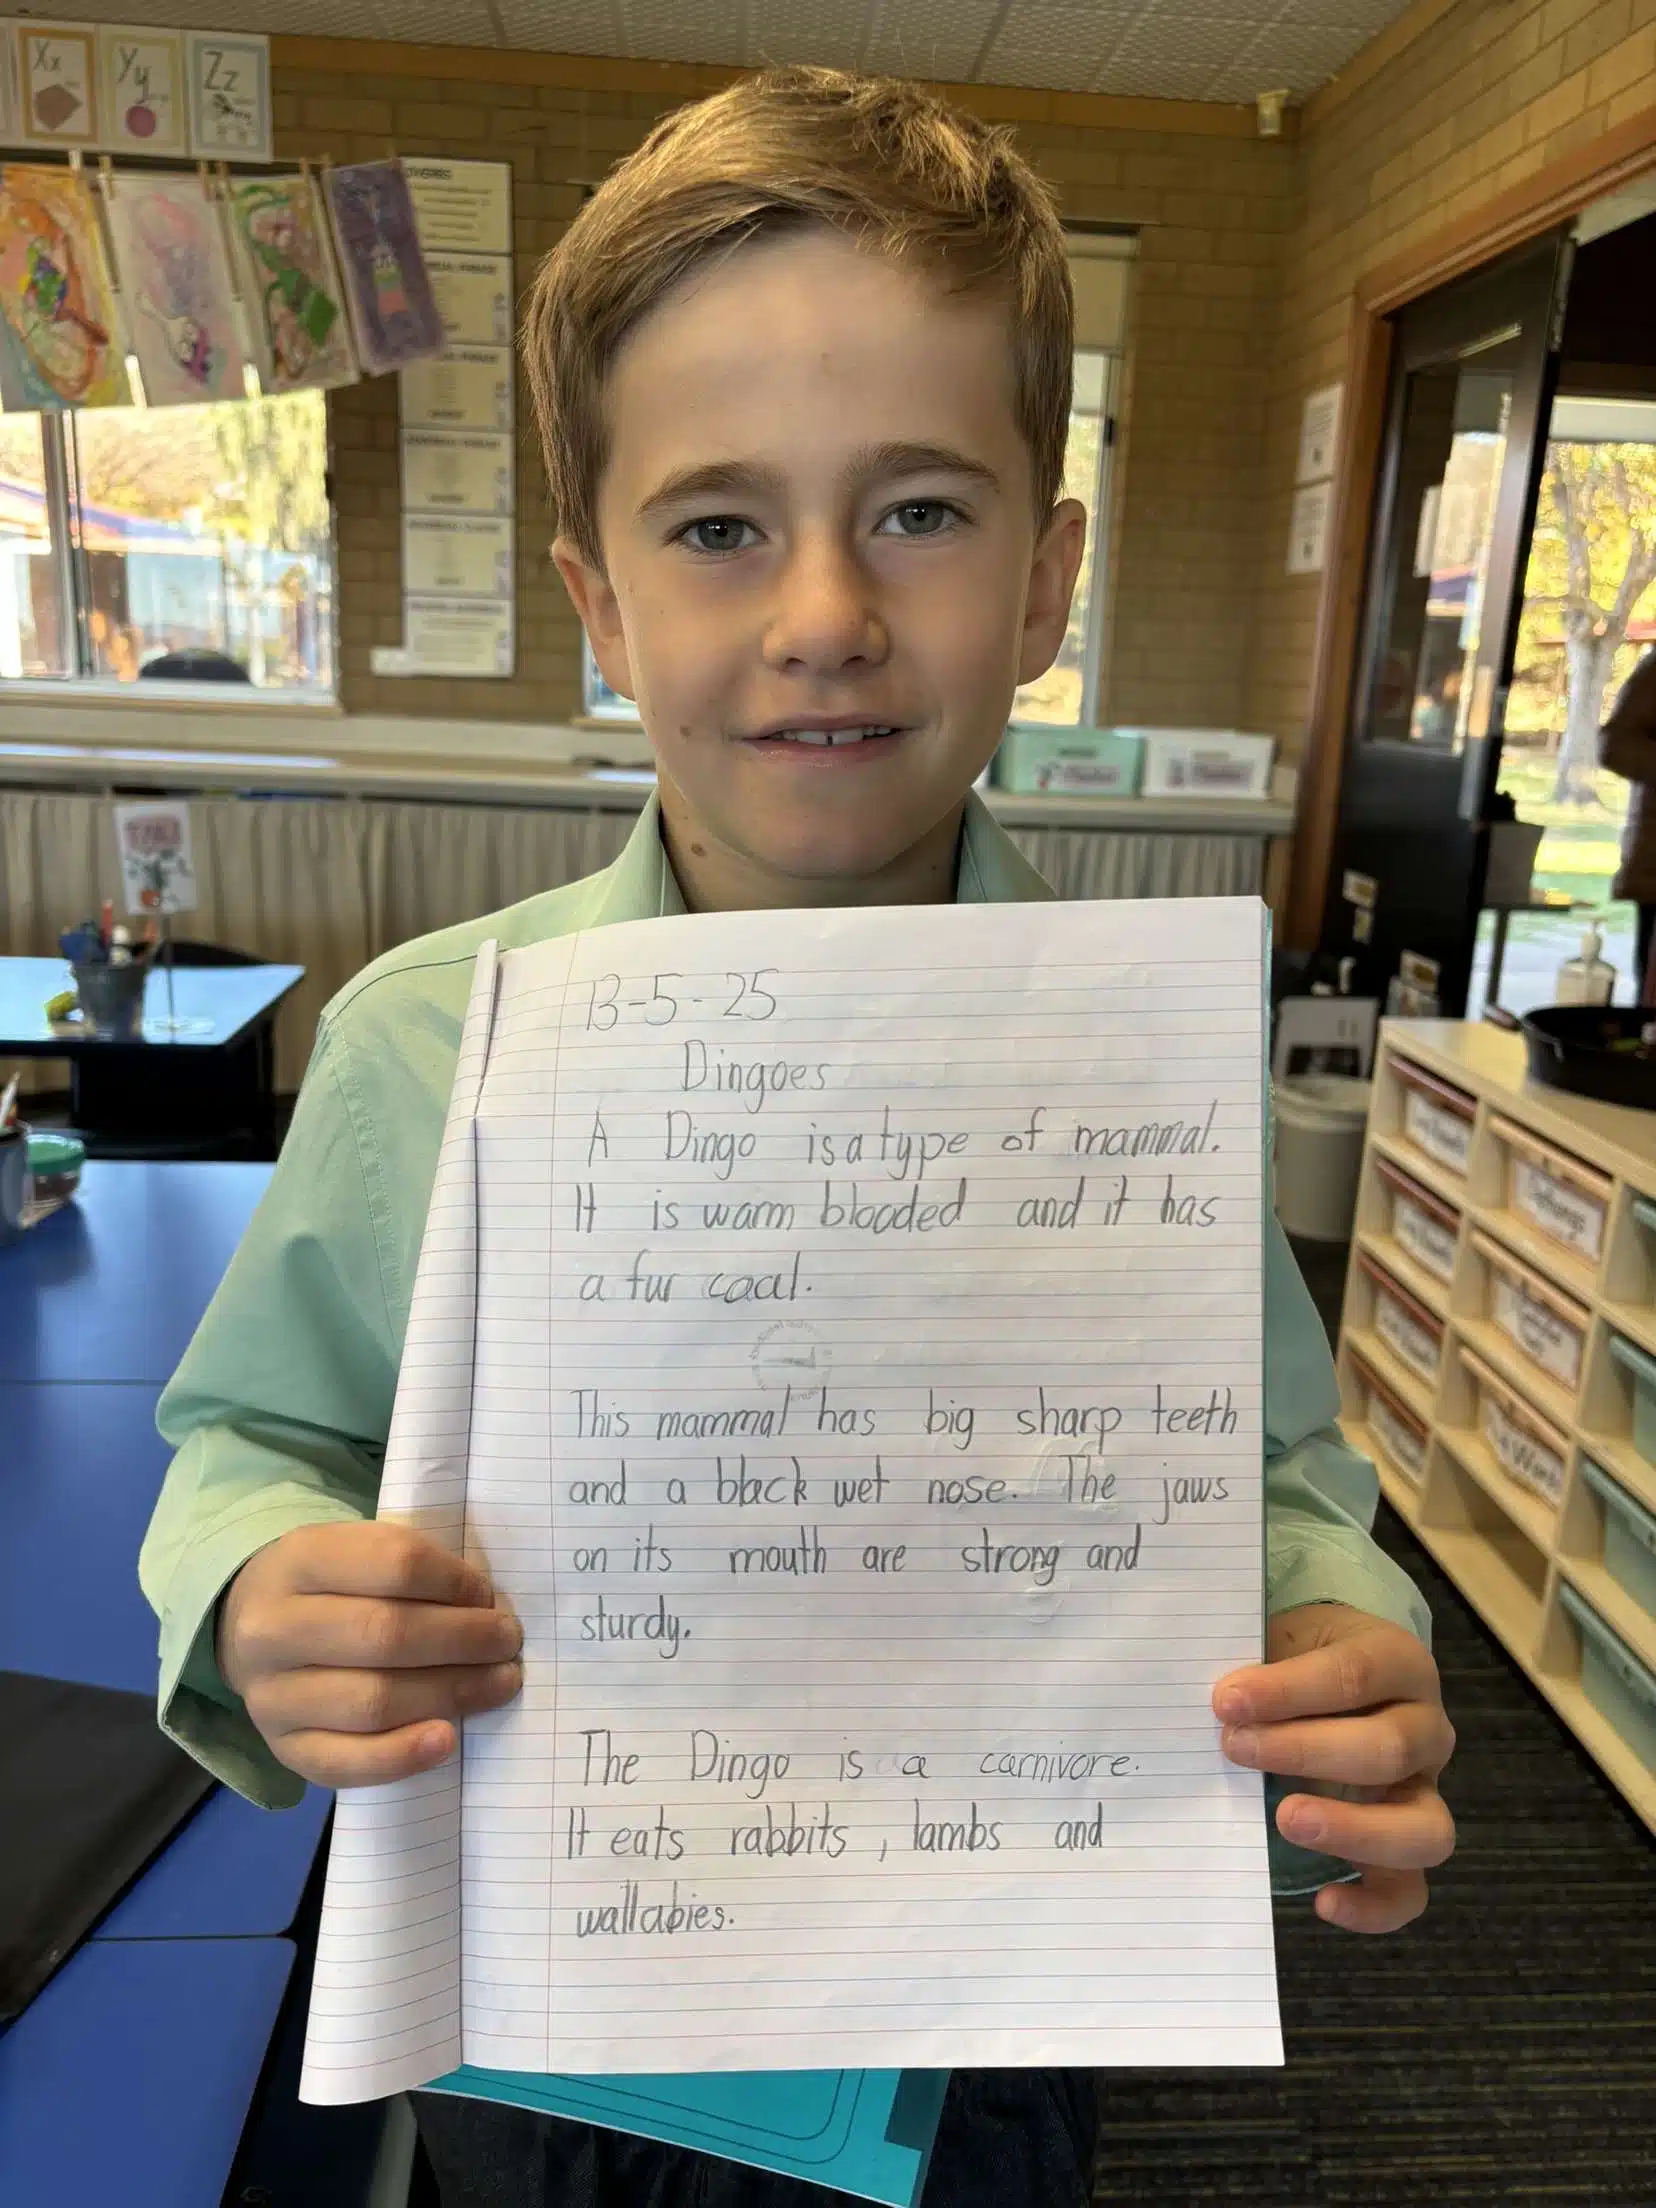 Xx
Yy
Zz
13-5-25
Dingoes
A Dingo is a type of mammal.
It is warm blooded and it has
a fur coat.
This mammal has big sharp teeth
and a black wet nose. The jaws
on its mouth are strong and
sturdy.
The Dingo is a carnivore.
It eats rabbits, lambs and
wallabies.